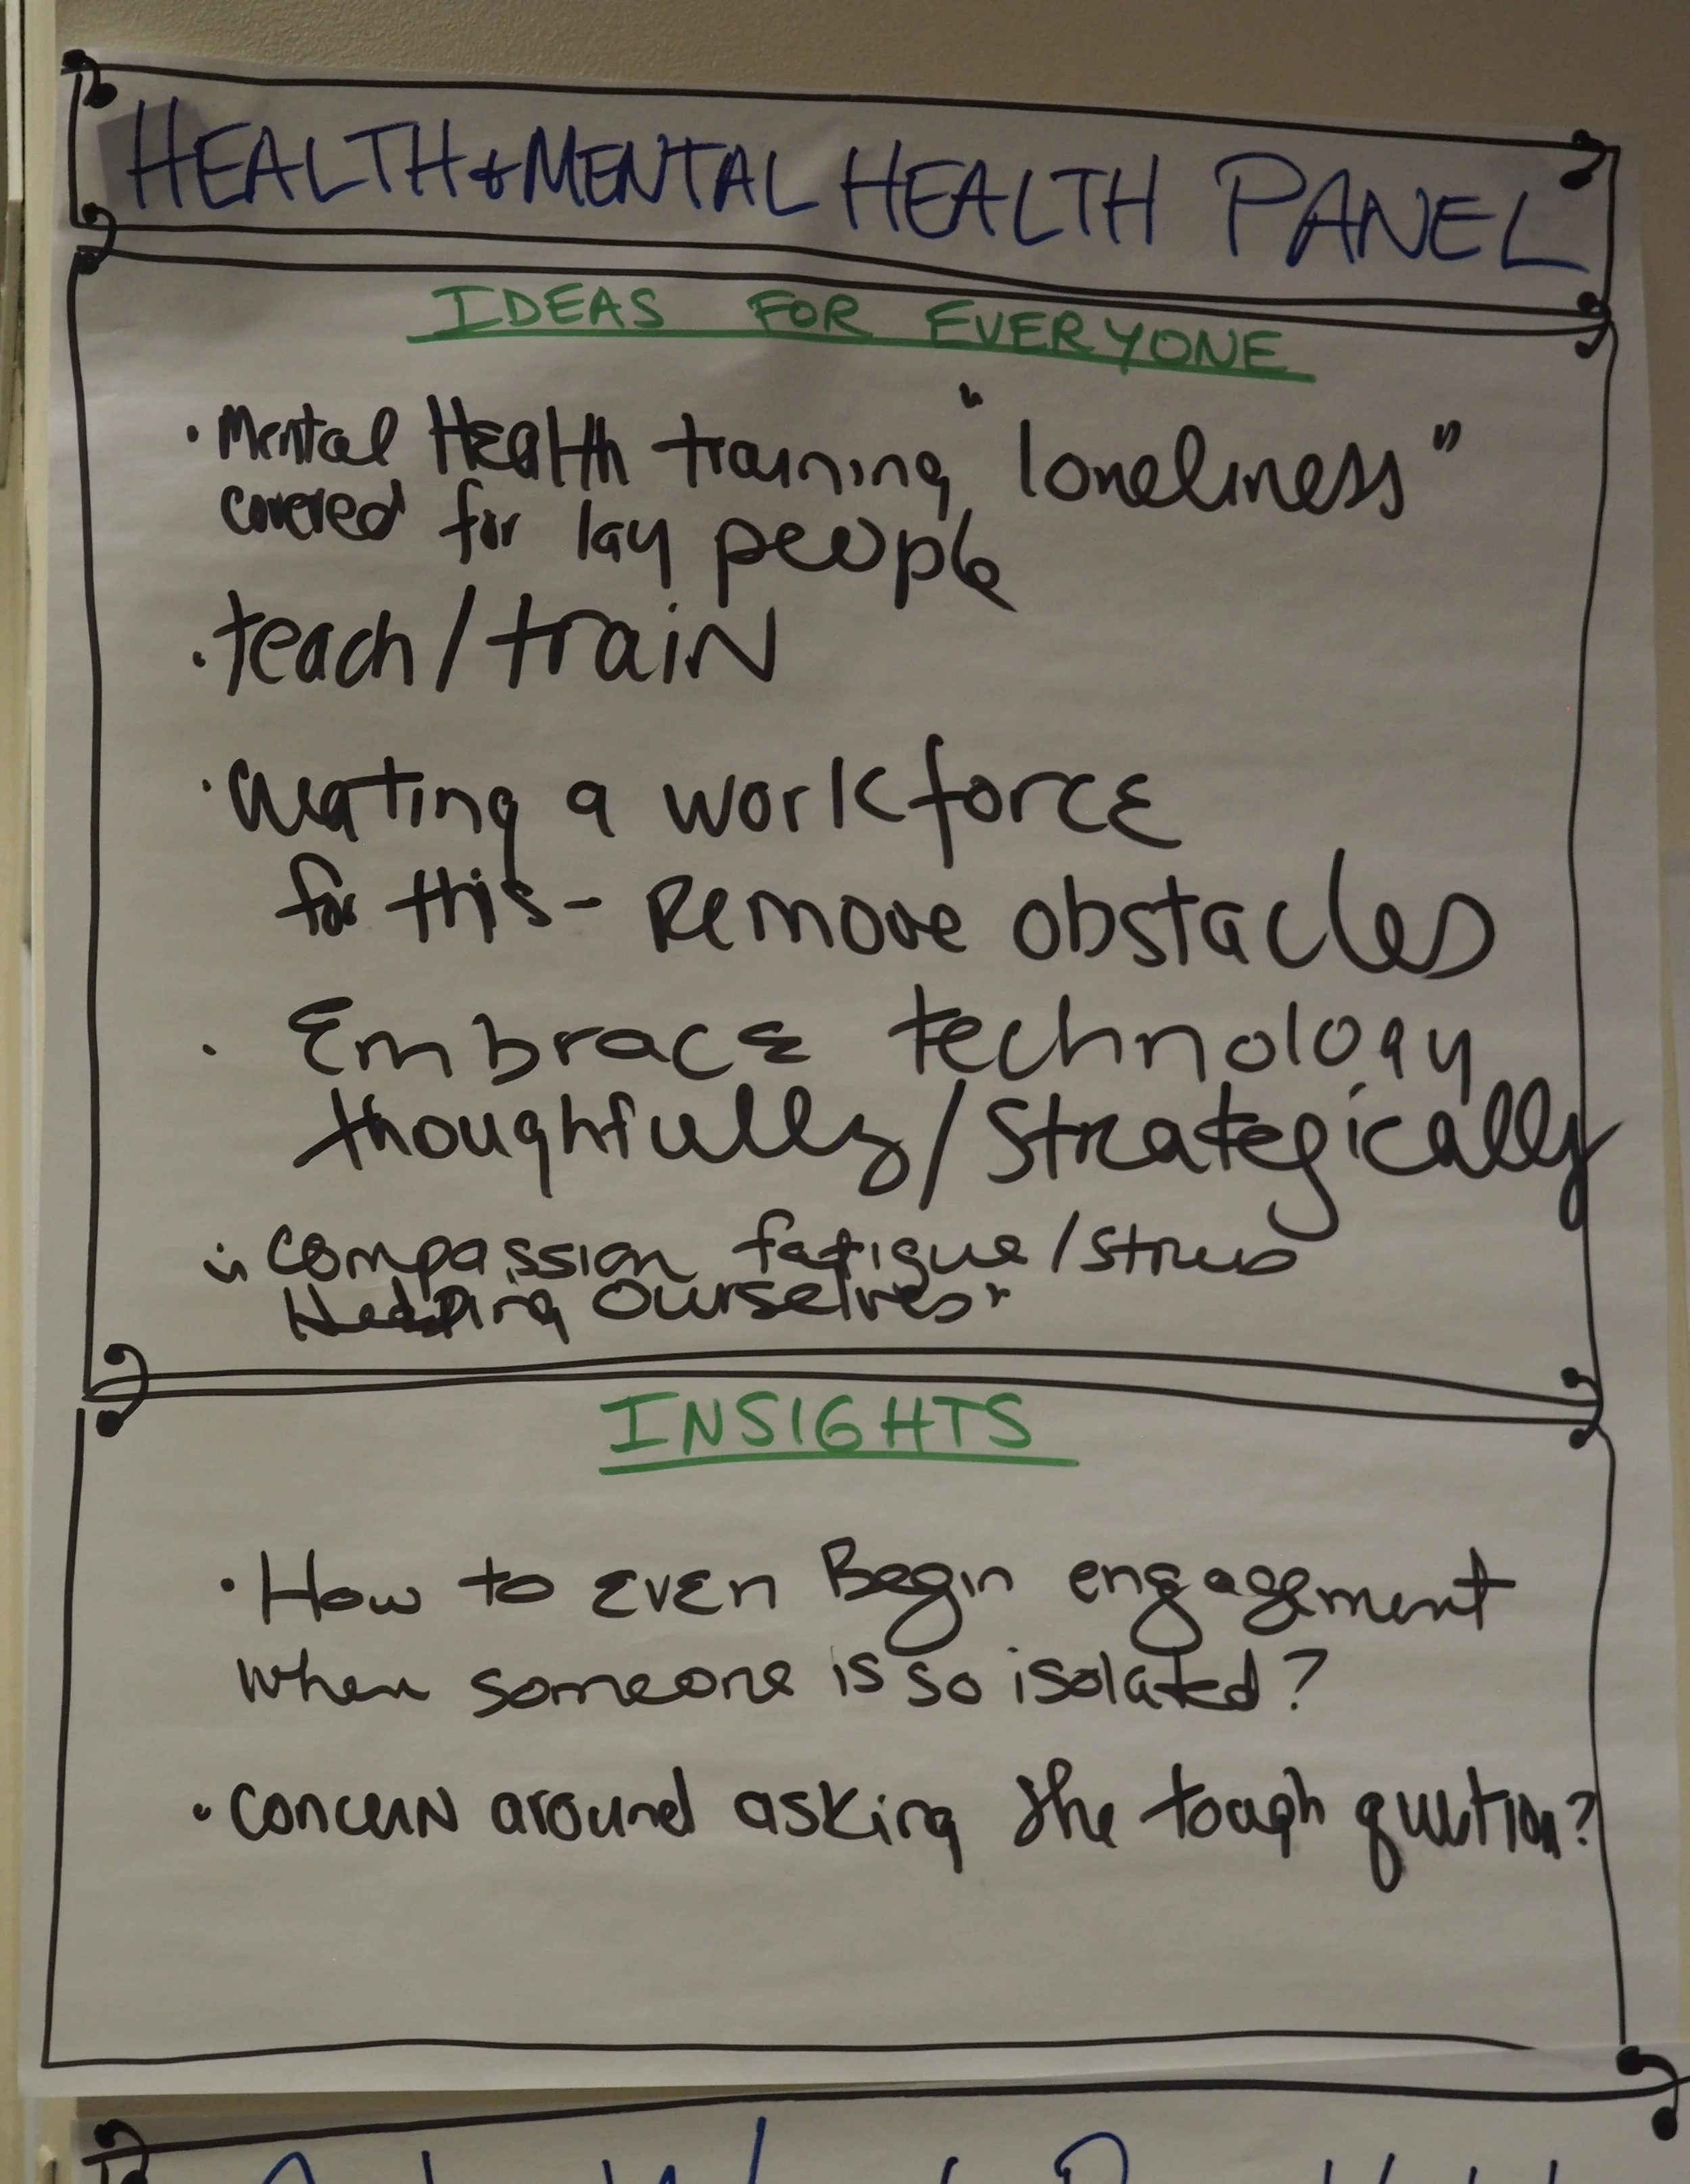 HEALTH & MENTAL HEALTH PANEL
IDEAS FOR EVERYONE
• Mental Health training "loneliness"
covered for lay people
• teach/train
• Creating a workforce
for this - Remove obstacles
• Embrace technology
thoughtfully/Strategically
• Compassion fatigue/stress
Helping Ourselves
INSIGHTS
• How to Even Begin engagement
when someone is so isolated?
• Concern around asking the tough question?